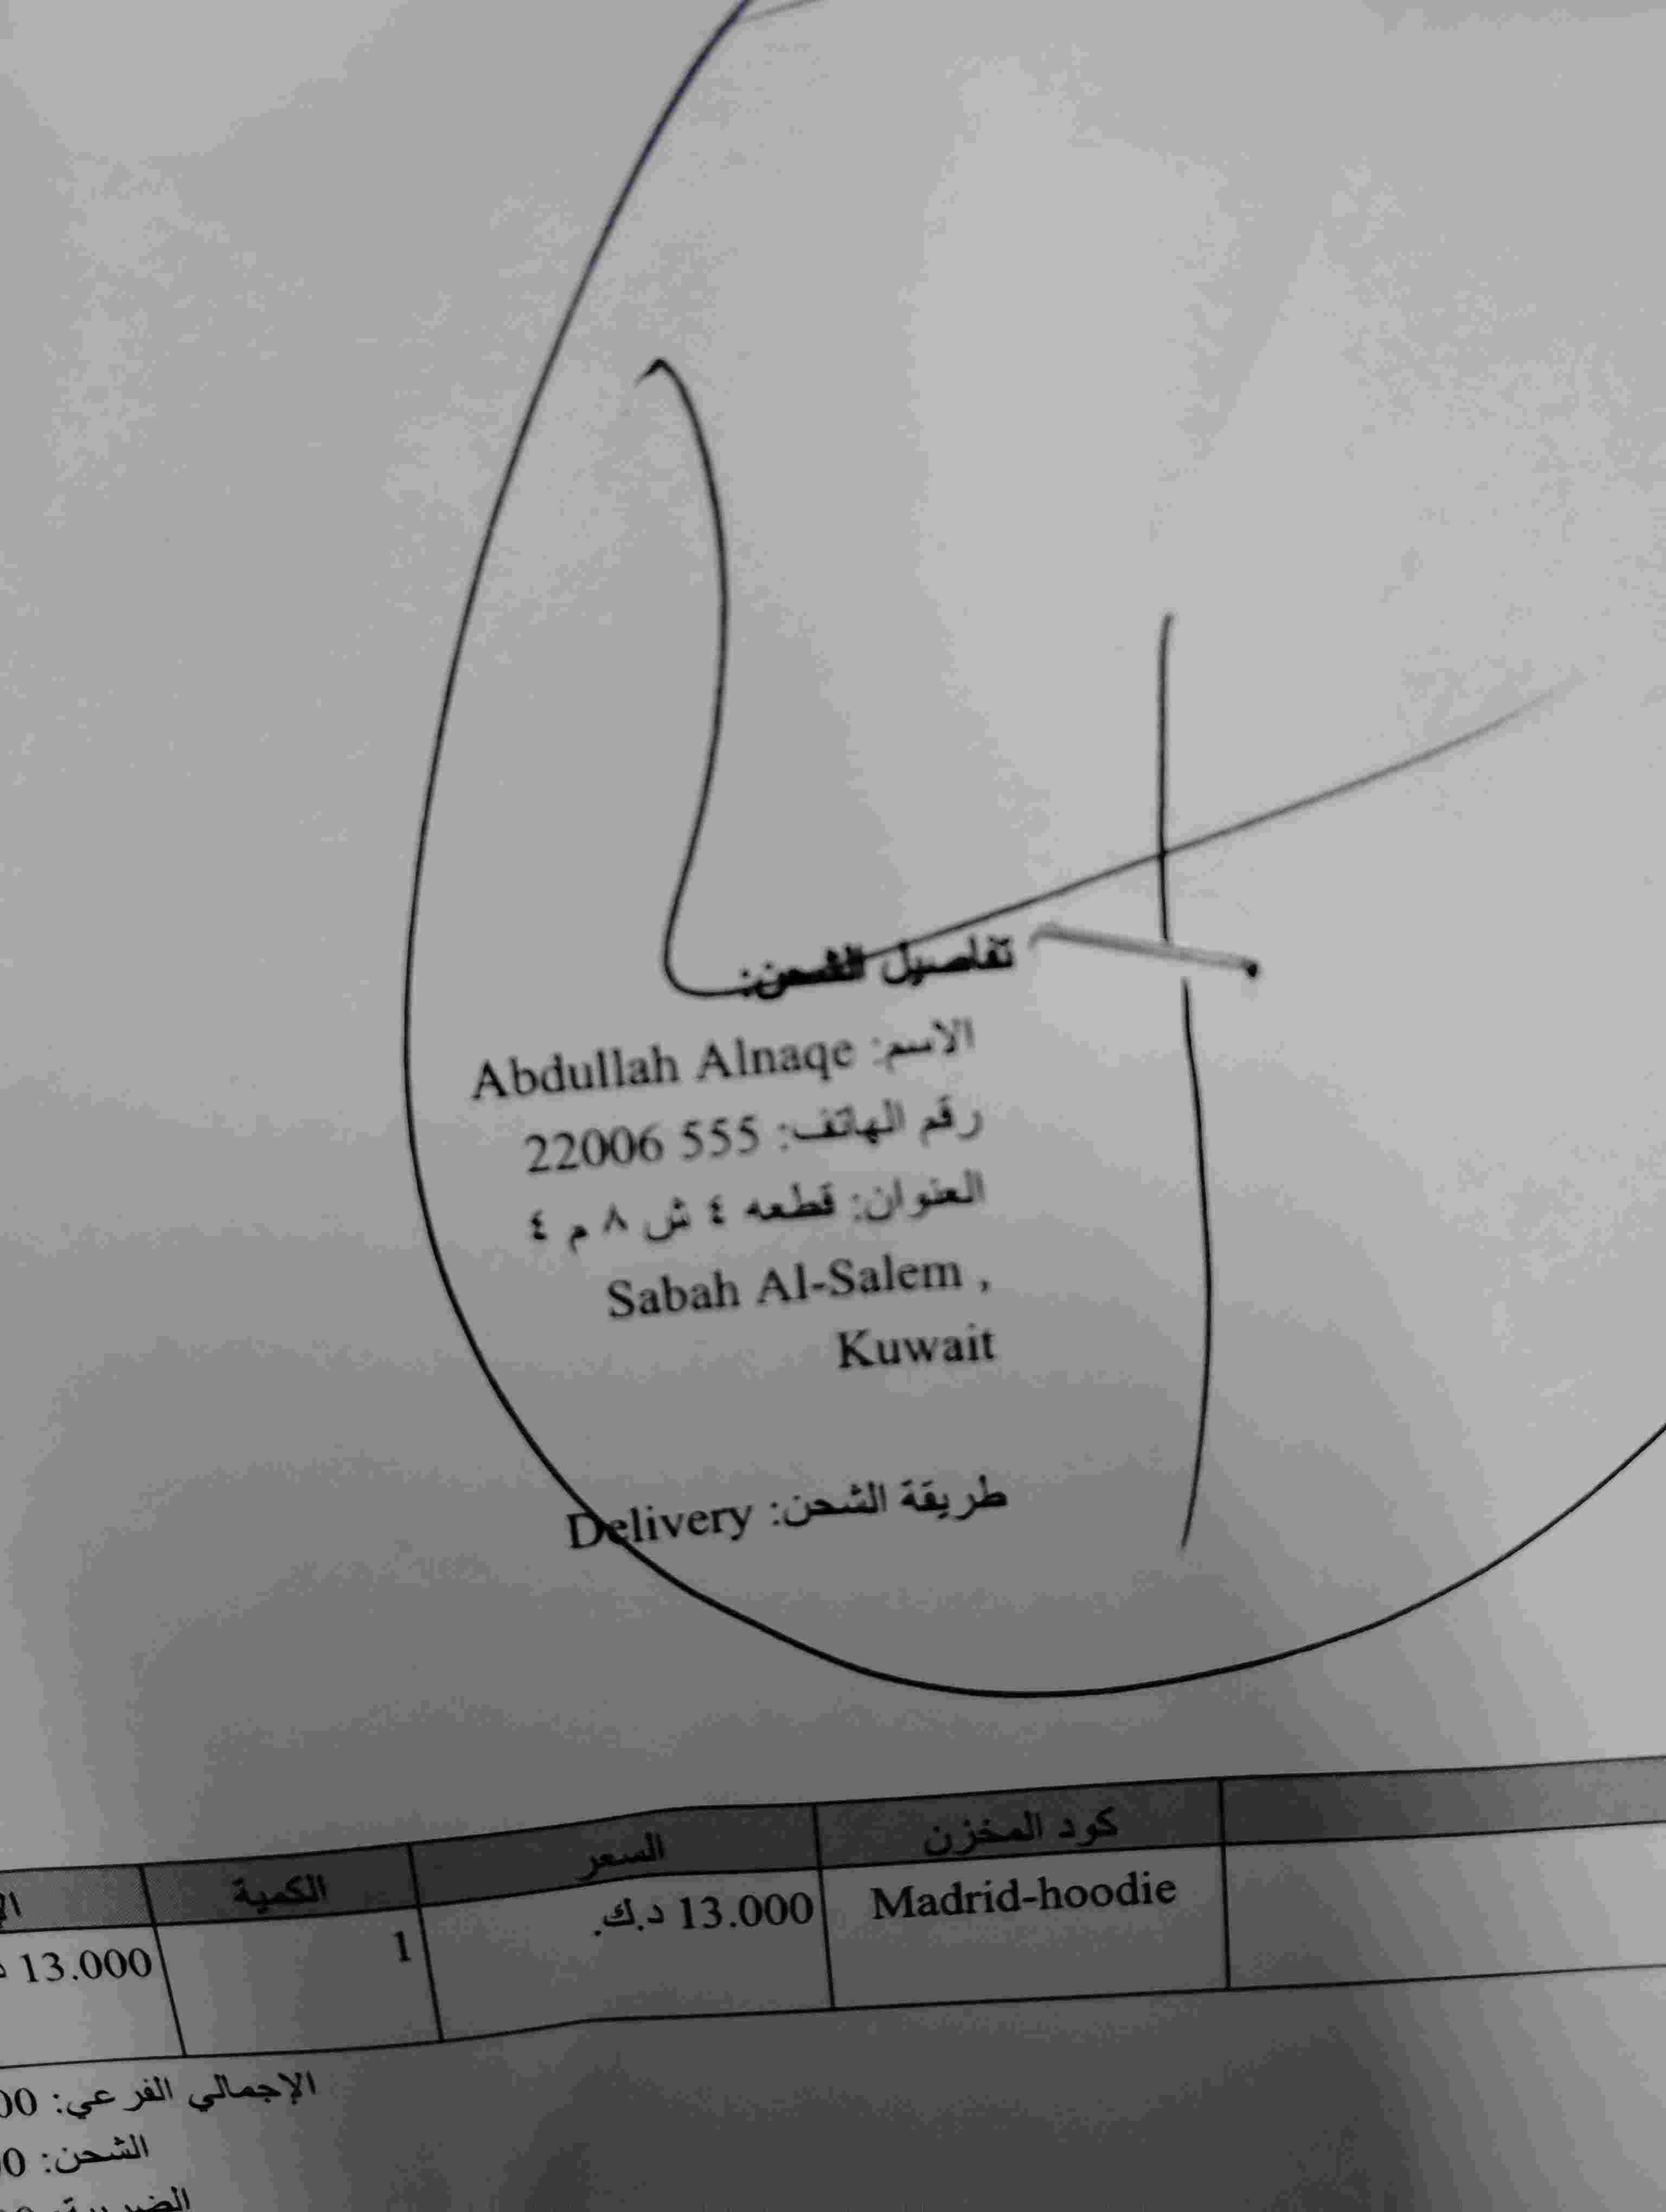 تفاصيل الشحن:
الاسم: Abdullah Alnaqe
رقم الهاتف: 22006 555
العنوان: قطعه ٤ ش ٨ م ٤
Sabah Al-Salem ,
Kuwait
طريقة الشحن: Delivery
كود المخزن السعر الكمية
Madrid-hoodie 13.000 د.ك. 1 13.000
الإجمالي الفرعي:
الشحن: